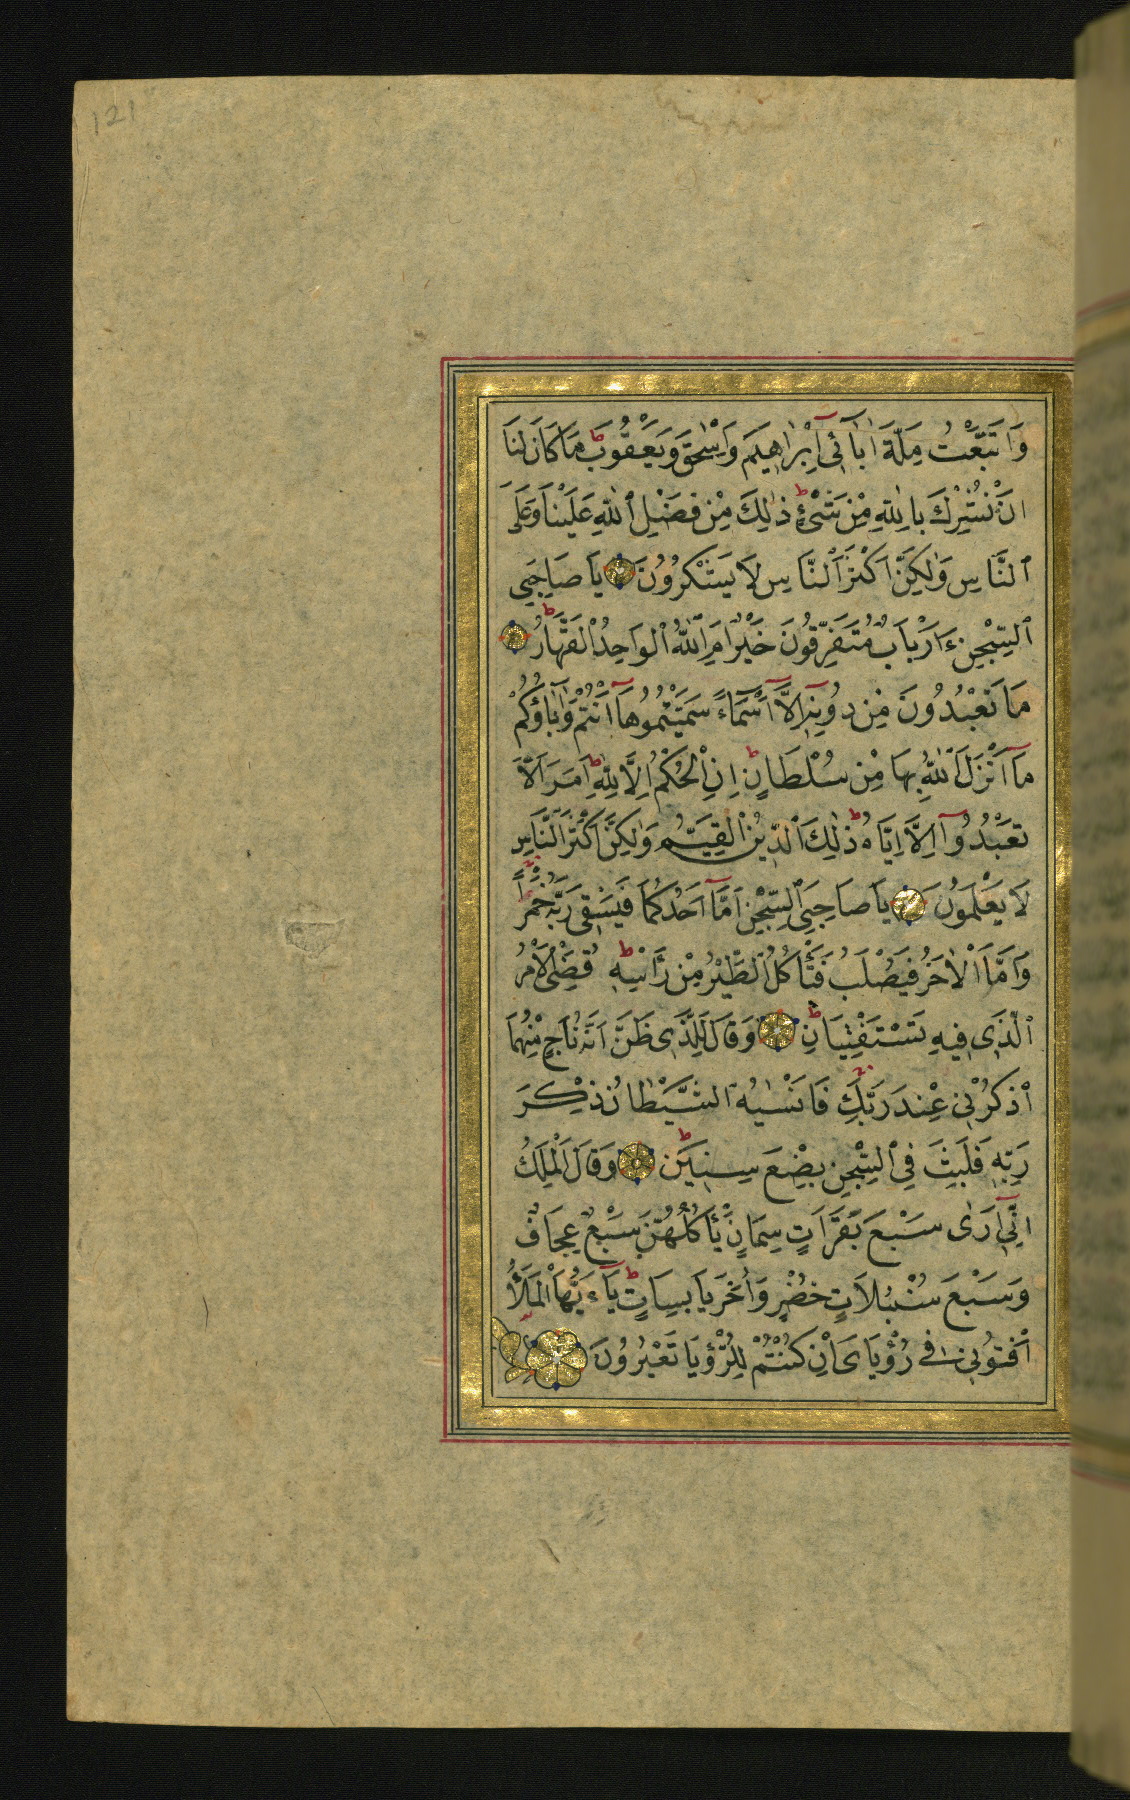 121
وَاتَّبَعْتُ مِلَّةَ اٰبَآئِىٓ اِبْرَاهِيمَ وَاِسْحٰقَ وَيَعْقُوبَ ط مَا كَانَ لَنَا
اَنْ نُشْرِكَ بِاللّٰهِ مِنْ شَىْءٍ ط ذٰلِكَ مِنْ فَضْلِ اللّٰهِ عَلَيْنَا وَعَلَى
النَّاسِ وَلٰكِنَّ اَكْثَرَ النَّاسِ لَا يَشْكُرُونَ يَا صَاحِبَىِ
السِّجْنِ ءَاَرْبَابٌ مُتَفَرِّقُونَ خَيْرٌ اَمِ اللّٰهُ الْوَاحِدُ الْقَهَّارُ ط
مَا تَعْبُدُونَ مِنْ دُونِهٓ اِلَّآ اَسْمَآءً سَمَّيْتُمُوهَآ اَنْتُمْ وَاٰبَاؤُكُمْ
مَآ اَنْزَلَ اللّٰهُ بِهَا مِنْ سُلْطَانٍ ط اِنِ الْحُكْمُ اِلَّا لِلّٰهِ ط اَمَرَ اَلَّا
تَعْبُدُوٓا اِلَّا اِيَّاهُ ط ذٰلِكَ الدِّينُ الْقَيِّمُ وَلٰكِنَّ اَكْثَرَ النَّاسِ
لَا يَعْلَمُونَ يَا صَاحِبَىِ السِّجْنِ اَمَّآ اَحَدُكُمَا فَيَسْقِى رَبَّهُ خَمْرًا
وَاَمَّا الْاٰخَرُ فَيُصْلَبُ فَتَأْكُلُ الطَّيْرُ مِنْ رَأْسِهِ ط قُضِىَ الْاَمْرُ
الَّذِى فِيهِ تَسْتَفْتِيَانِ ط وَقَالَ لِلَّذِى ظَنَّ اَنَّهُ نَاجٍ مِنْهُمَا
اذْكُرْنِى عِنْدَ رَبِّكَ فَاَنْسٰيهُ الشَّيْطَانُ ذِكْرَ
رَبِّهِ فَلَبِثَ فِى السِّجْنِ بِضْعَ سِنِينَ ط وَقَالَ الْمَلِكُ
اِنِّىٓ اَرٰى سَبْعَ بَقَرَاتٍ سِمَانٍ يَأْكُلُهُنَّ سَبْعٌ عِجَافٌ
وَسَبْعَ سُنْبُلَاتٍ خُضْرٍ وَاُخَرَ يَابِسَاتٍ ط يَآءَيُّهَا الْمَلَأُ
اَفْتُونِى فِى رُؤْيَاىَ اِنْ كُنْتُمْ لِلرُّؤْيَا تَعْبُرُونَ